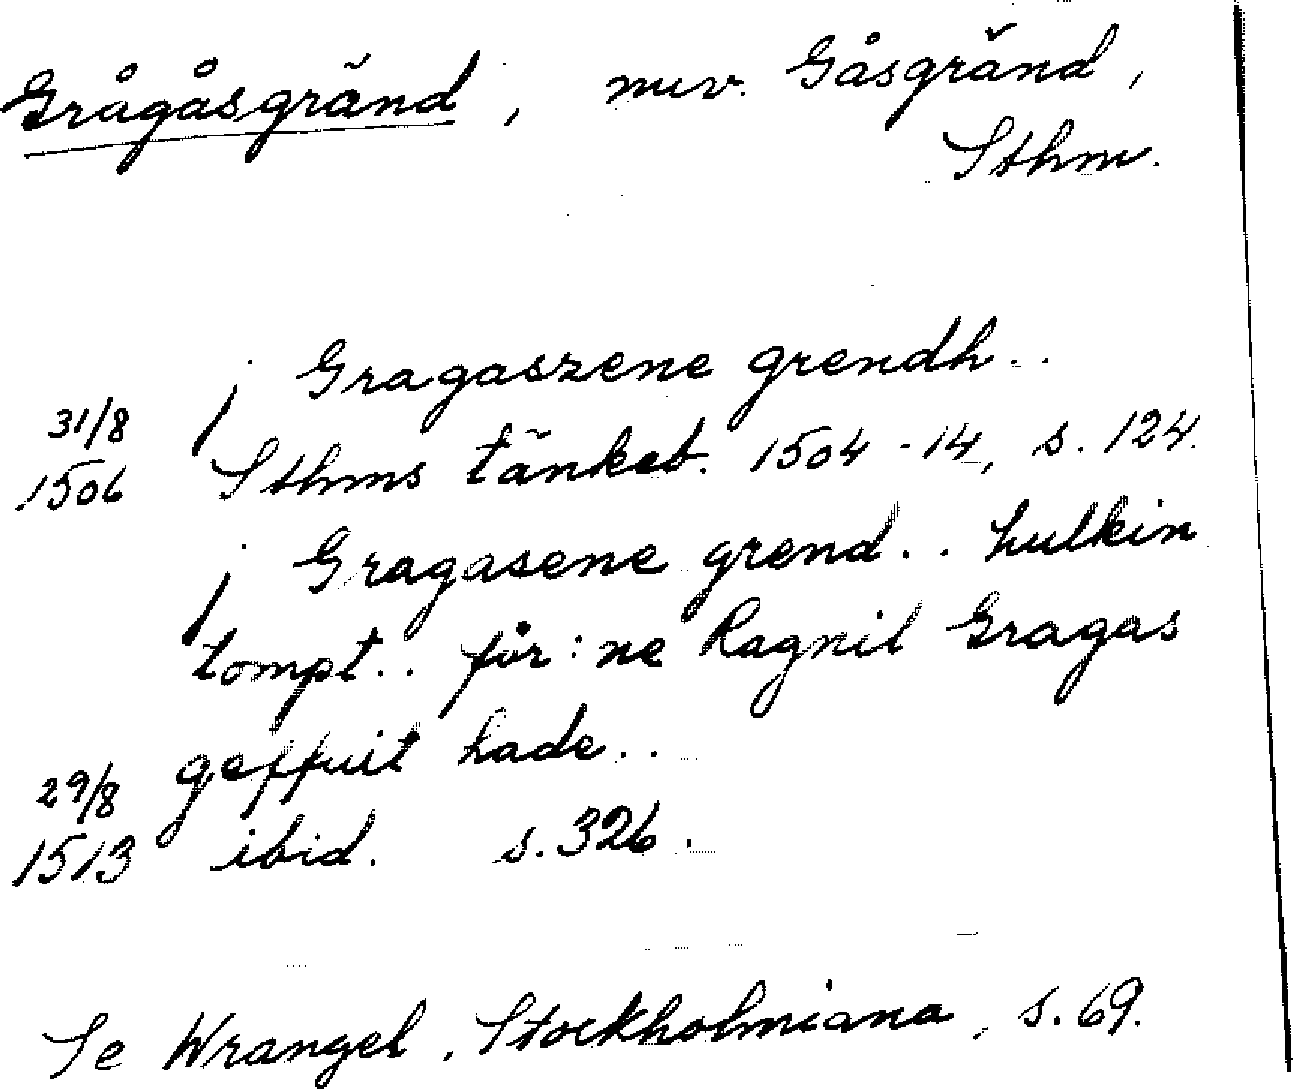 Grågåsgränd, nuv. Gåsgränd,
Sthm.
j Gragaszene grendh..
31/8
1506 Sthms tänkeb. 1504-14, s. 124.
j Gragasene grend.. hulkin
tompt.. för:ne Ragnil Gragas
geffuit hade..
29/8
1513 ibid. s. 326.
Se Wrangel, Stockholmiana, s. 69.